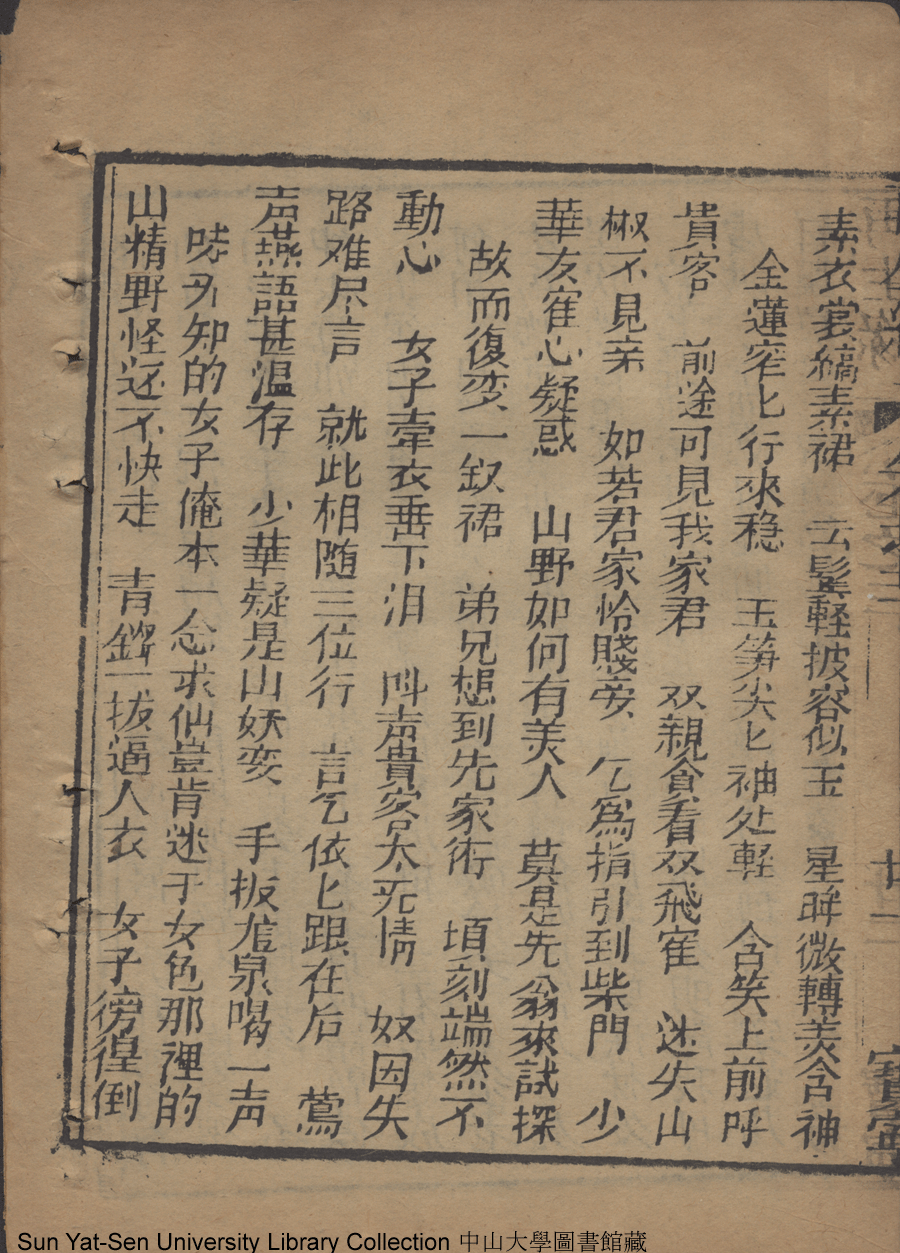 素衣裳縞素裙　云鬓軽披容似玉　星眸微轉美含神
金蓮窄匕行來穏　玉笋尖匕袖处軽　含笑上前呼
貴客　前途可見我家君　双親貪看双飛寉　迷失山
椒不見亲　如若君家怜賤妾　乞爲指引到柴門　少
華友寉心疑惑　山野如何有美人　莫是先翁來試探
故而復变一釵裙　弟兄想到先家術　頃刻端然不
動心　女子牽衣垂下泪　呌声貴客太无情　奴因失
路难尽言　就此相随三位行　言乞依匕跟在后　鶯
声燕語甚温存　少華疑是山妖变　手扳泉喝一声
㖷知的女子俺本一念求仙豈肯迷于女色那裡的
山精野怪还不快走　青鋒一拔逼人衣　女子徬徨倒
廿一
寳
Sun Yat-Sen University Library Collection 中山大學圖書館藏